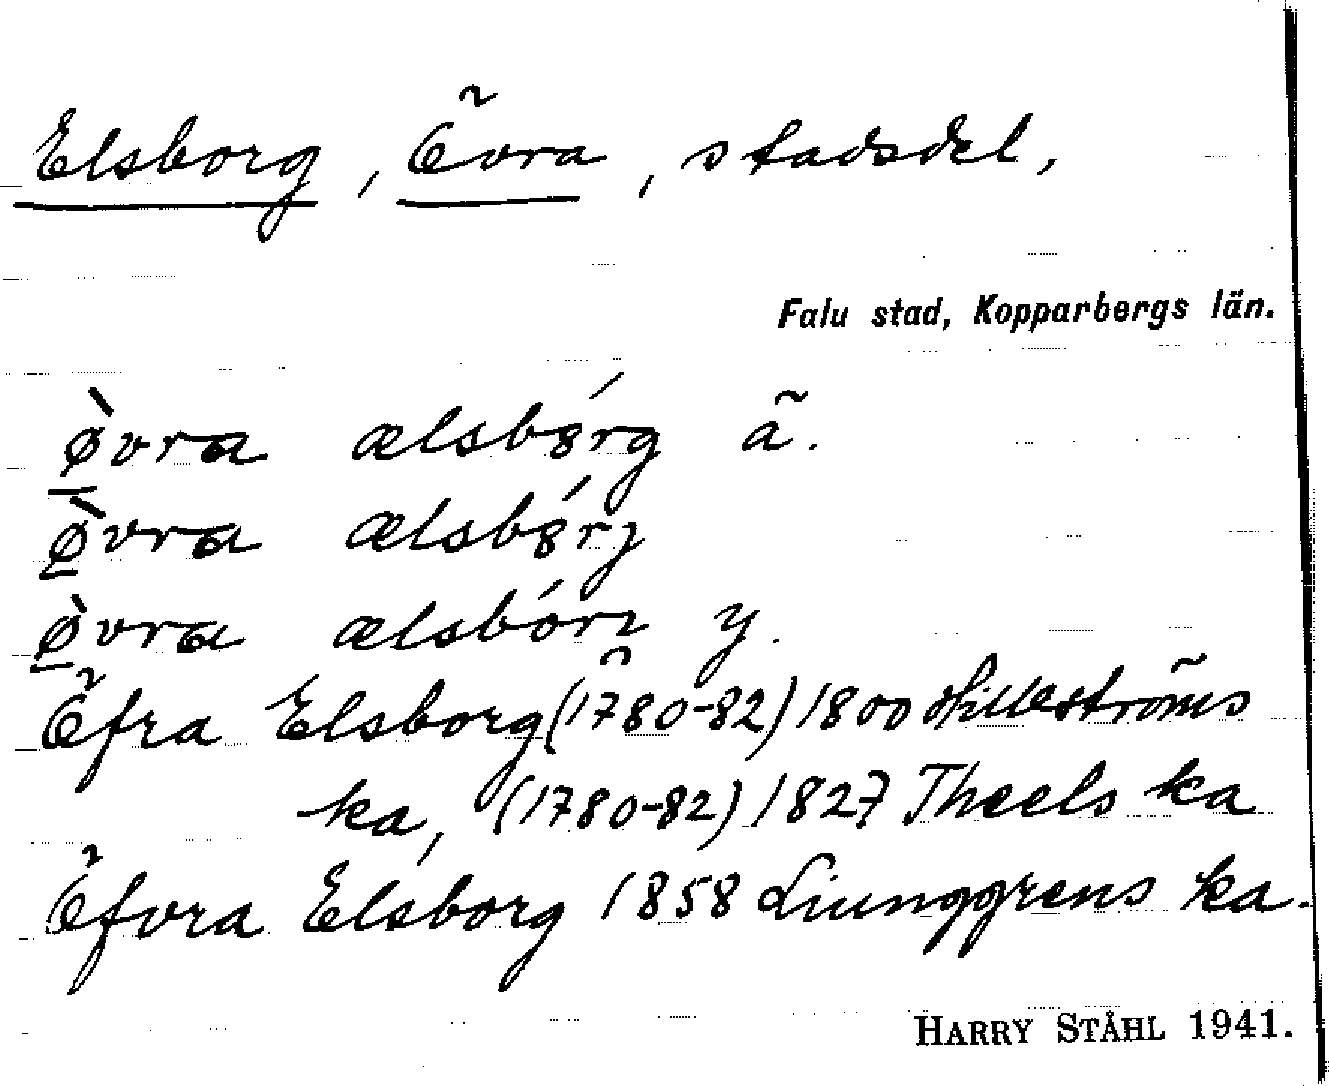 Elsborg, Övra, stadsdel,
Falu stad, Kopparbergs län.
ø̀vra ælsbórg ä.
ø̀vra ælsbórj
ø̀vra ælsbórj y.
Öfra Elsborg (1780-82) 1800 Hilleströms
ka, (1780-82) 1827 Theels ka
Öfvra Elsborg 1858 Ljunggrens ka.
HARRY STÅHL 1941.